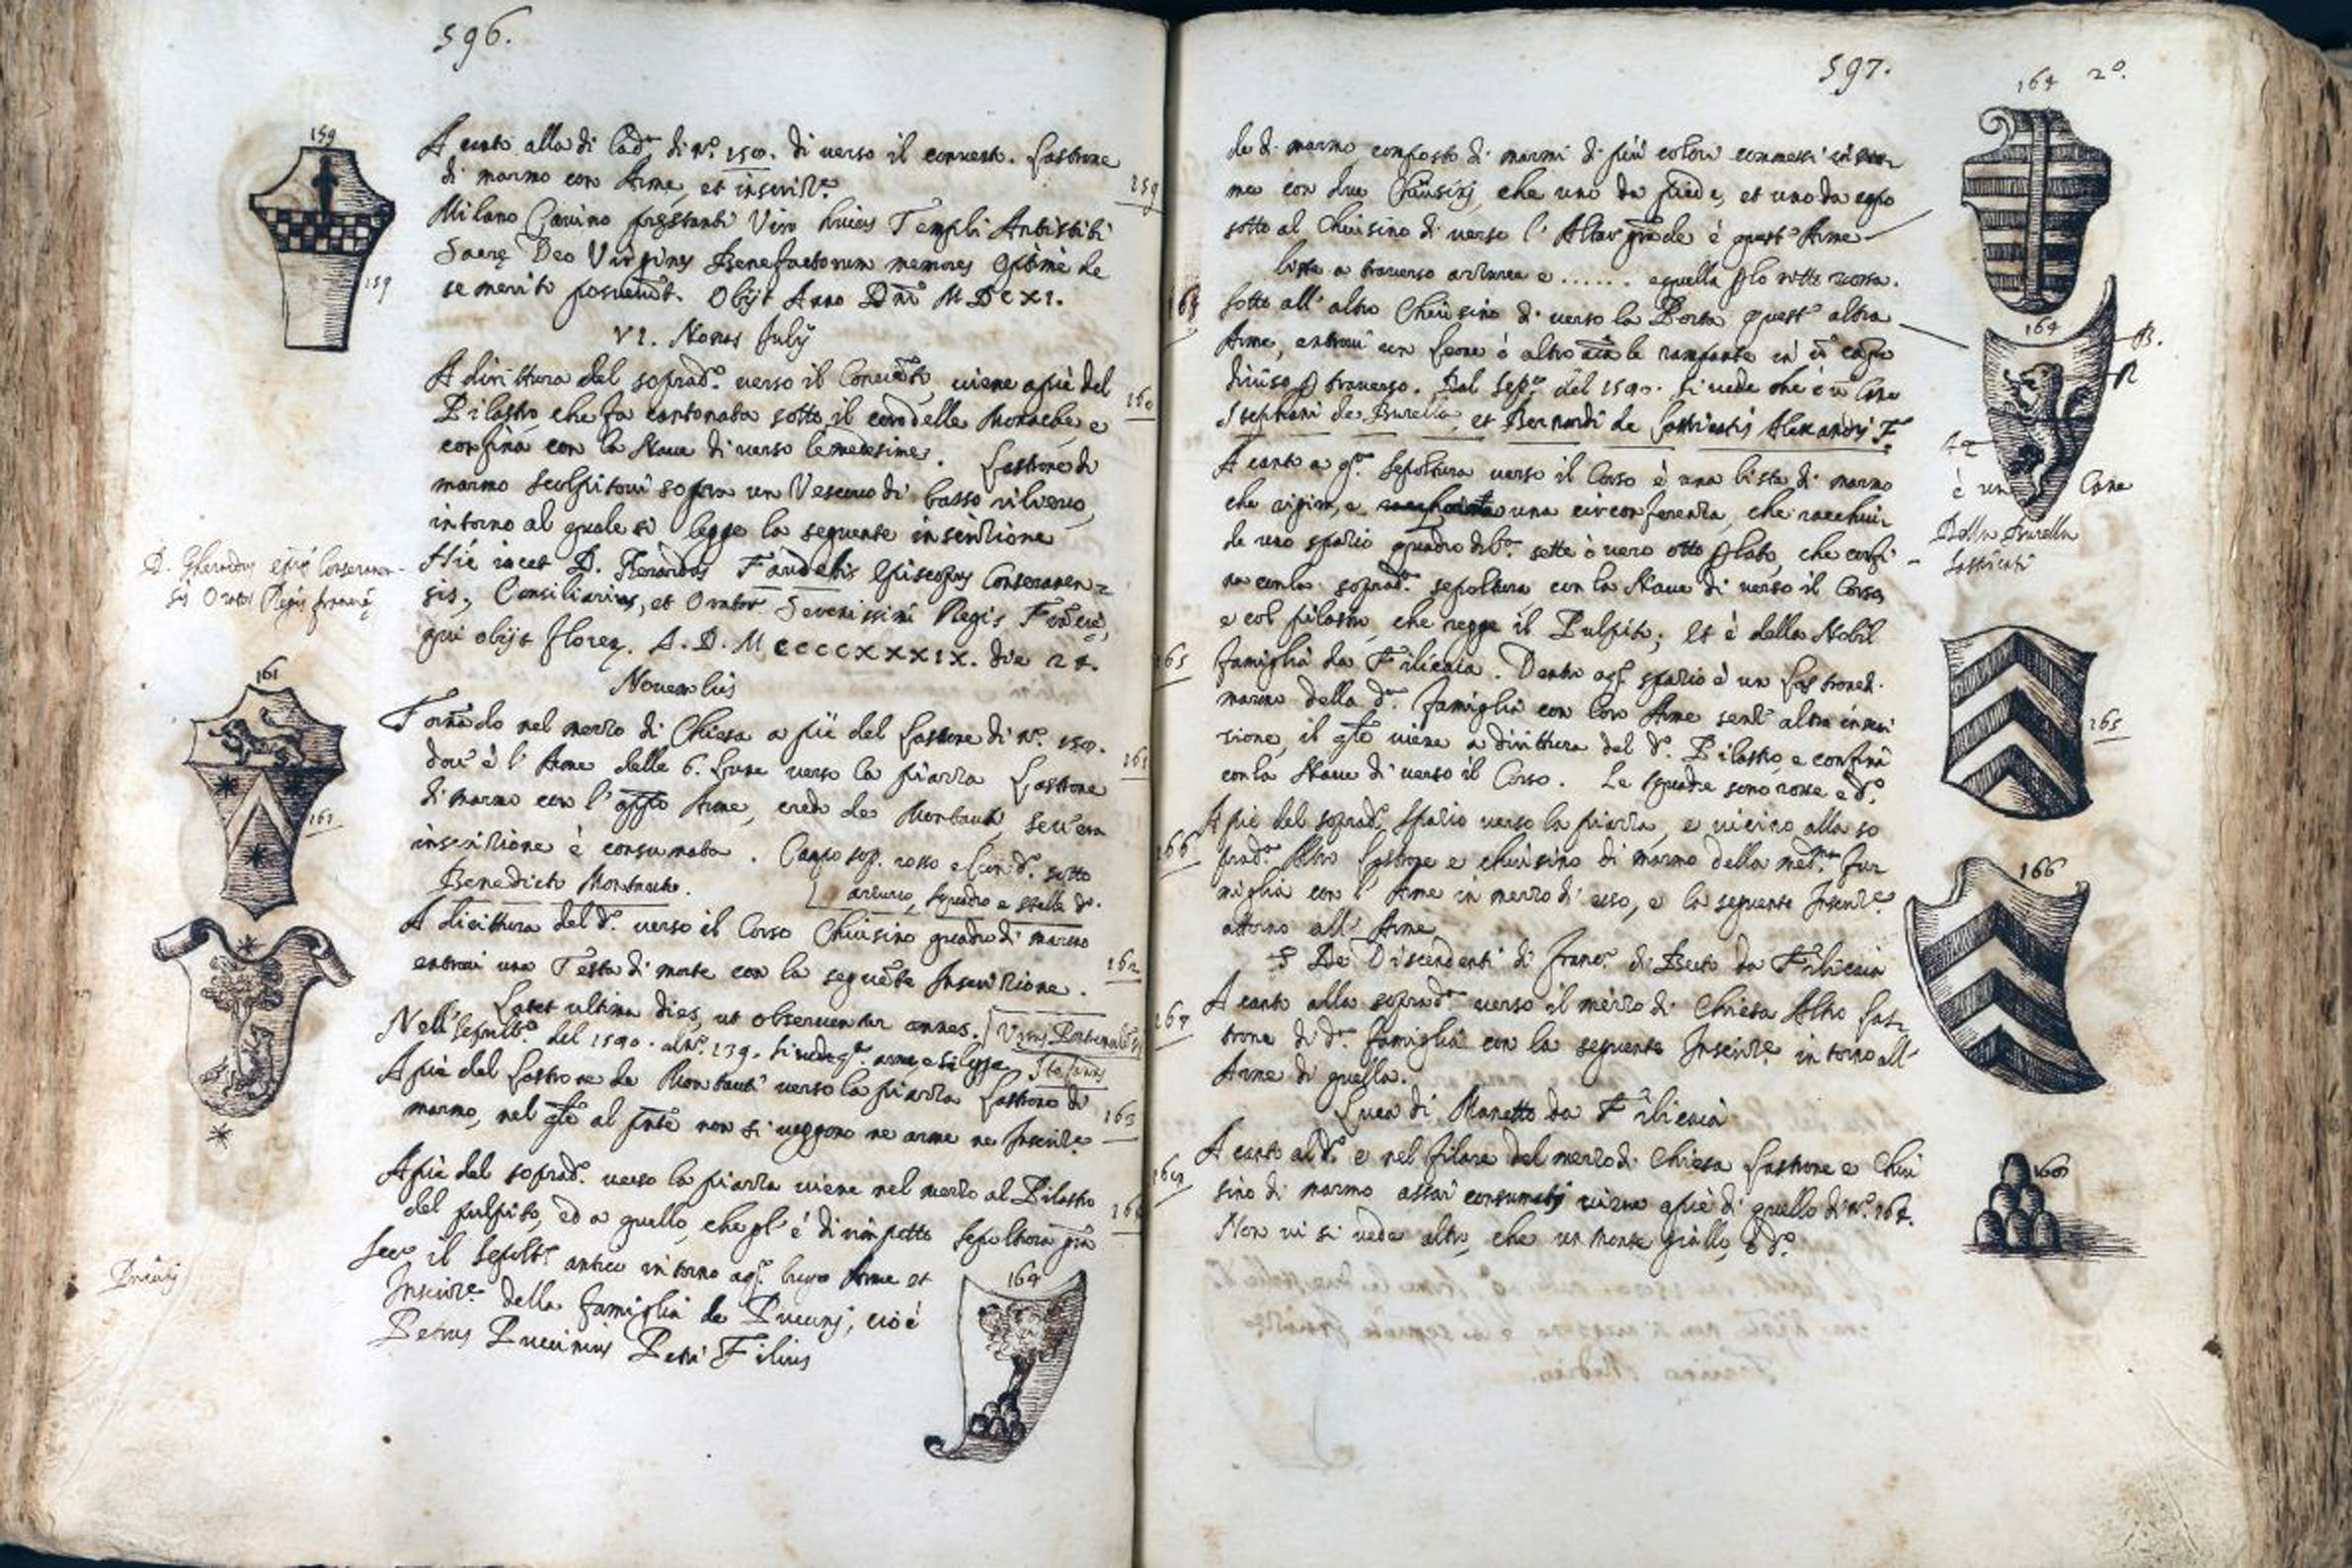 596.
159
A canto alla di Cadr. di N.º 150. di verso il convent. Lastrone
di marmo con Arme, et inscritt.e
159
Milano Cavino prestanti Viro huius Templi Antistiti
Sacrę Deo Virgines Benefactorum memores optimè de
se merito posuerūt. Obijt Anno Dnī MDCXI.
VI. Nonas Julij
159
A dirittura del soprad.º verso il Convēto, viene a piè del
160
Pilastro, che fa cantonata sotto il coro delle Monache, e
confina con la Nave di verso le medesime. Lastrone di
marmo scolpitovi sopra un Vescovo di basso rilievo,
intorno al quale si legge la seguente inscritione
D. Gherardus epūs Conseranen-
sis Orator Regis francię
Hic iacet D. Gerardus Episcopus Conseranen=
sis, Consiliarius, et Orator Serenissimi Regis
qui obijt floren. A. D. MCCCCXXXIX. die 24.
Novembris
161
Tornādo nel mezzo di Chiesa a piè del Lastrone di N.º 150.
dov' è l' Arme delle 6. Lune verso la piazza Lastrone
161
di marmo con l' Arme, credo de Montauti, se v'era
161
inscritione è consumata. Campo sop. rosso e Leon d.º sotto
Benedicti Montauti.
azzurro, squadro e stelle d.º
A dirittura del d.º verso il Corso Chiusino quadro di marmo
entrovi una Testa di morte con la seguēte Inscritione.
162
Latet ultima dies, ut observentur omnes.
Nell' sepult.º del 1590. al N.º 139. si vede q.ª arme e si legge
A piè del Lastrone de Montauti verso la piazza Lastrone di
163
marmo, nel q̄le al p̄nte non si veggono ne arme ne Inscritt.e
A piè del soprad.º verso la piazza viene nel mezzo al Pilastro
164
del pulpito, ed a quello, che gl' è dirimpetto sepoltura
Seco il sepolt.º antico intorno a q.º luogo Arme et
Puccinij
Inscritt.e della famiglia de Puccinij, cioè
Petrus Puccinius Petri Filius
164
597.
164 2º.
de di marmo composto di marmi di più colori commessi
me con due Chiusinj, che uno da piede, et uno da capo
sotto al Chiusino di verso l' Altar grāde è quest' Arme
liste a traverso azzurre e ...... e quella p̱ lo ritto rossa.
164
Sotto all' altro Chiusino di verso la Porta quest' altra
164
Arme, entrovi un Leone ò altro aīale rampante in ū cāpo
B.
R
diviso p̱ traverso. Dal Sep.º del 1590. si vede che è ū Cane
Stephani de Burella, et Bernardi de Lastricatis Alexandri F.
è un Cane
Della Burella
Lastricati
A canto a q.ª Sepoltura verso il Corso è una lista di marmo
che rigira, e una circonferenza, che racchiu-
de uno spazio quadro di b.ª sette ò vero otto p̱ lato, che confi-
na con la soprad.ª sepoltura con la Nave di verso il Corso,
e col pilastro, che regge il Pulpito; et è della Nobil
165
famiglia da Filicaia. Dentro a q.º spazio è un Lastrone di
marmo della d.ª famiglia con loro Arme senz' altra inscri
tione, il q̄le viene a dirittura del d.º Pilastro, e confina
165
con la Nave di verso il Corso. Le squadre sono rosse e d.º
A piè del soprad.º Spazio verso la piazza, e vicino alla so
166
prad.ª Altro Lastrone e chiusino di marmo della med.ma fa
miglia con l' Arme in mezzo di esso, e la seguente Inscritt.e
166
attorno all' Arme
S De Discendenti di Franc.º di Berto da Filicaia
A canto alla soprad.ª verso il mezzo di Chiesa Altro Las-
167
trone di d.ª famiglia con la seguente Inscritt.e intorno all'
Arme di quella.
Luca di Manetto da Filicaia
A canto al d.º e nel filare del mezzo di Chiesa Lastrone e Chiu
168
sino di marmo assai consumatj viene a piè di quello di N.º 164.
168
Non vi si vede altro, che un Monte giallo, ò d.º